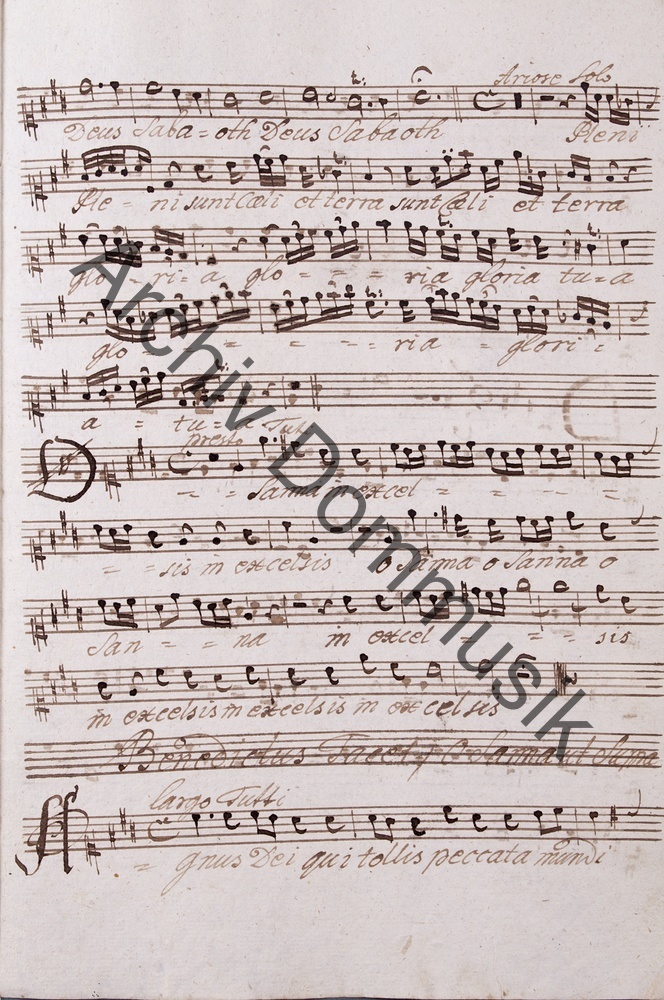 Ariose Solo
Deus Saba = oth Deus Sabaoth Pleni
Ple - ni sunt Cœli et terra sunt Cœli et terra
glo - ri = a glo = = = ria gloria tu = a
glo = - = - ria = glori =
a = tu = a Tutti
presto
O
- = = Sanna in excel = = - =
= = sis in excelsis o Sanna o Sanna o
San = = na in excel = = = sis
in excelsis in excelsis in excelsis
Benedictus Tacet O Sanna ut Supra
largo Tutti
A = gnus Dei qui tollis peccata mundi
Archiv Dommusik